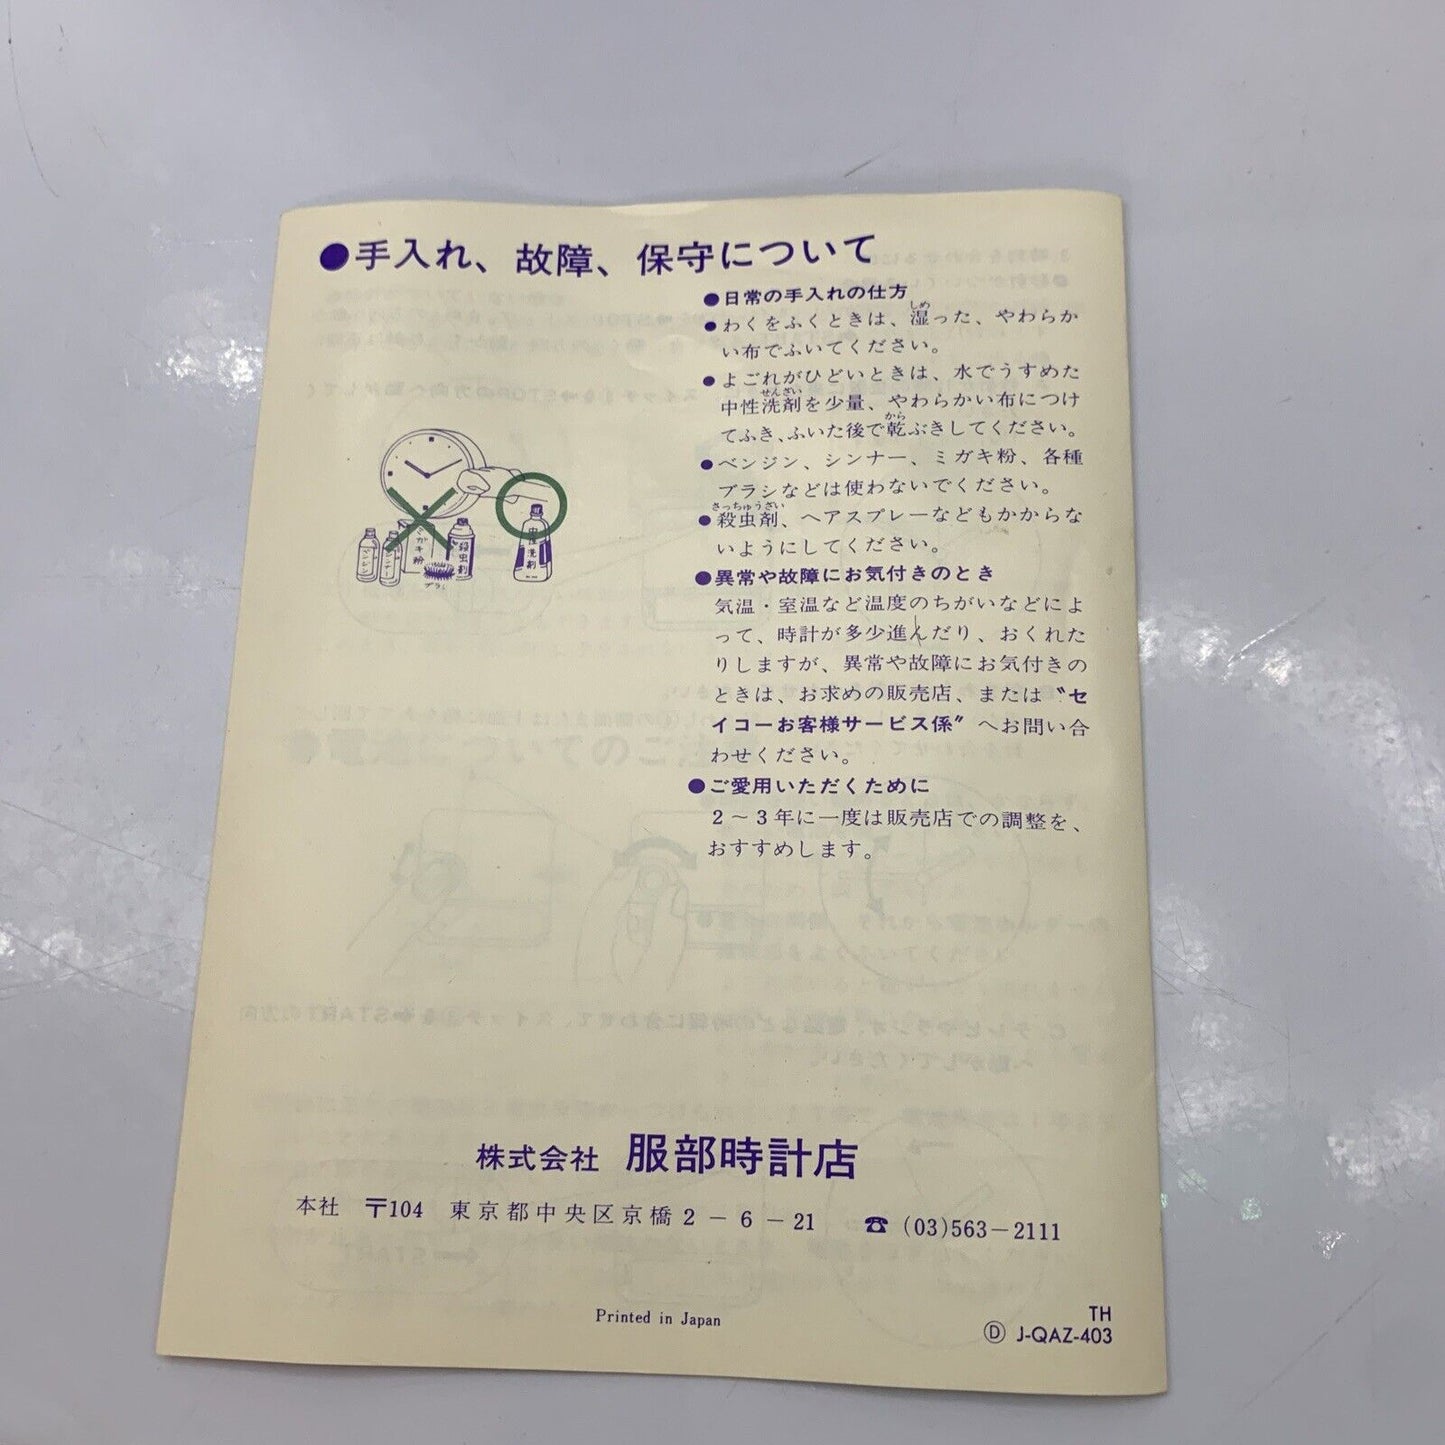 ●手入れ、故障、保守について
●日常の手入れの仕方
●わくをふくときは、湿った、やわらか
い布でふいてください。
●よごれがひどいときは、水でうすめた
中性洗剤を少量、やわらかい布につけ
てふき、ふいた後で乾ぶきしてください。
●ベンジン、シンナー、ミガキ粉、各種
ブラシなどは使わないでください。
●殺虫剤、ヘアスプレーなどもかからな
いようにしてください。
●異常や故障にお気付きのとき
気温・室温など温度のちがいなどによ
って、時計が多少進んだり、おくれた
りしますが、異常や故障にお気付きの
ときは、お求めの販売店、または〝セ
イコーお客様サービス係〟へお問い合
わせください。
●ご愛用いただくために
2～3年に一度は販売店での調整を、
おすすめします。
ベンジン
シンナー
ミガキ粉
ブラシ
殺虫剤
中性洗剤
株式会社 服部時計店
本社 〒104 東京都中央区京橋2－6－21 ☎ (03)563－2111
Printed in Japan
TH
Ⓓ J-QAZ-403